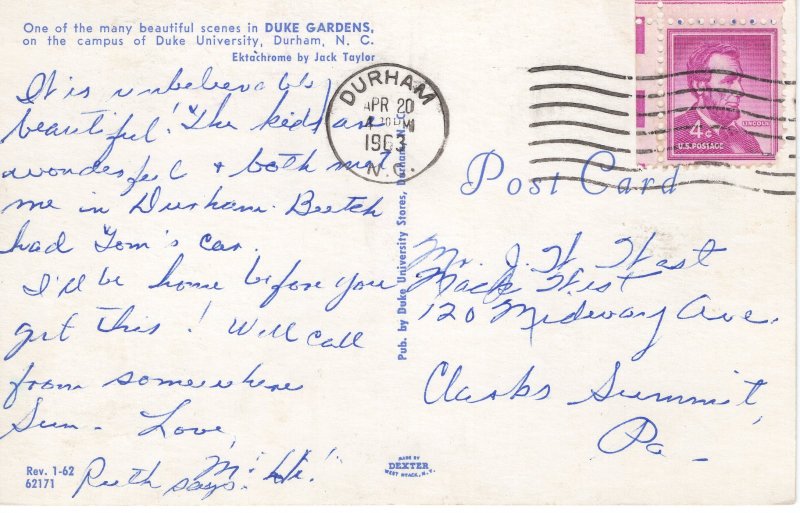 One of the many beautiful scenes in DUKE GARDENS,
on the campus of Duke University, Durham, N. C.
Ektachrome by Jack Taylor
It is unbelievably
beautiful! The kids are
wonderful & both met
me in Durham.
had Tom's car.
I'll be home before you
get this! Will call
from somewhere
Sun - Love,
M.
Ruth says "Hi!"
Rev. 1-62
62171
DURHAM
APR 20
1963
N.C.
4¢
LINCOLN
U.S. POSTAGE
Post Card
Pub. by Duke University Stores, Durham, N. C.
Mr. J. W. West
Mack West
120 Midway Ave.
Clarks Summit,
Pa.
MADE BY
DEXTER
WEST NYACK, N.Y.